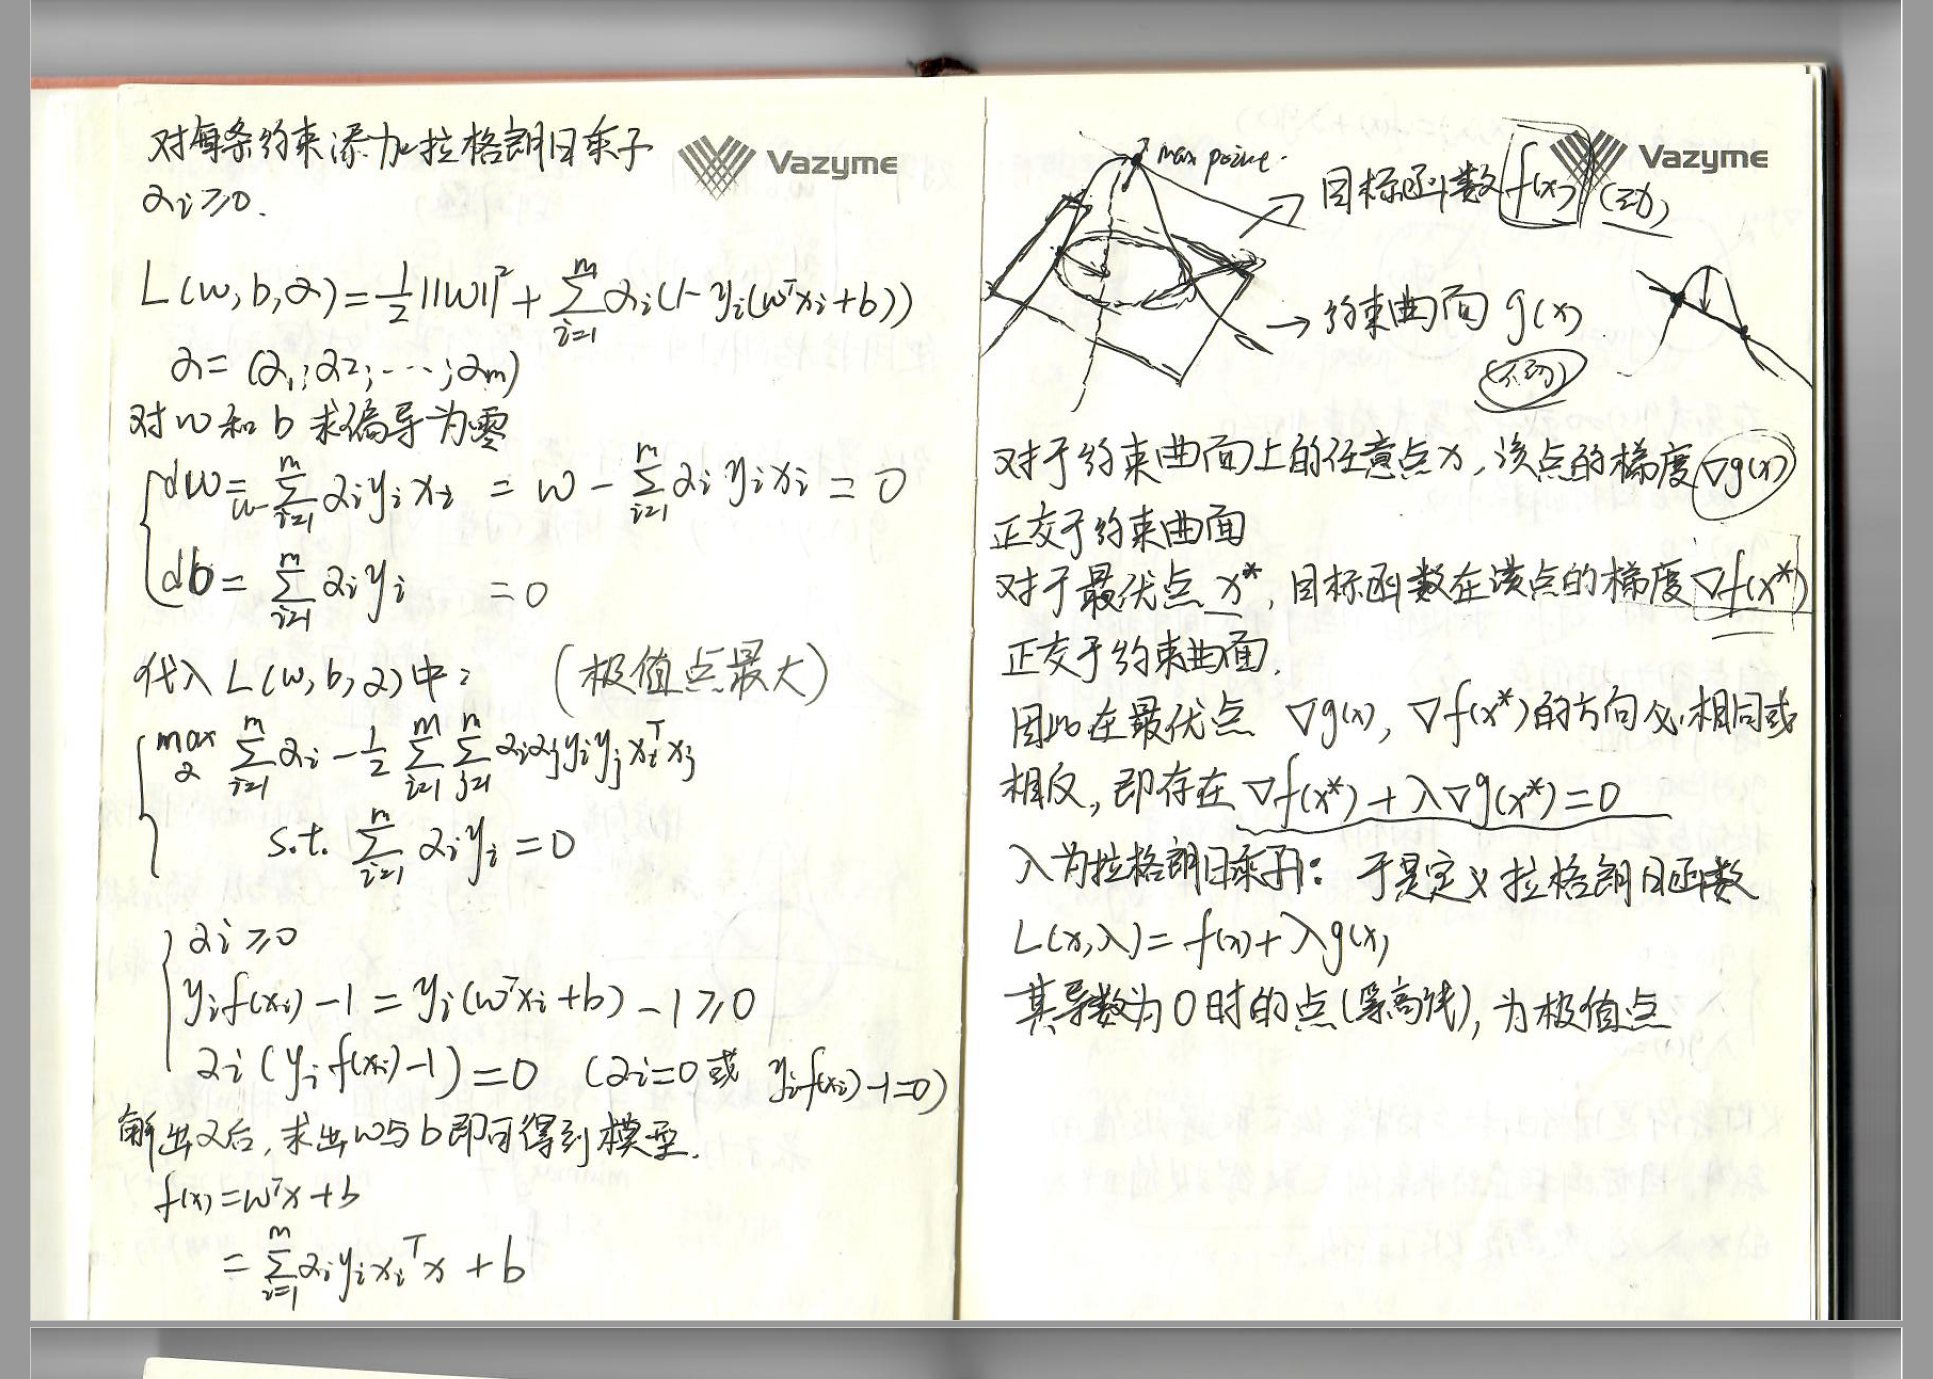 对每条约束添加拉格朗日乘子
αi≥0.
Vazyme
L(w,b,α)=½||w||²+∑_{i=1}^{m}αi(1-yi(wᵀxi+b))
α=(α1;α2;···;αm)
对w和b求偏导为零
dw=w-∑_{i=1}^{m}αiyixi = w-∑_{i=1}^{m}αiyixi=0
db=∑_{i=1}^{m}αiyi =0
代入L(w,b,α)中: (极值点最大)
max_α ∑_{i=1}^{m}αi-½∑_{i=1}^{m}∑_{j=1}^{m}αiαjyiyjxiᵀxj
s.t. ∑_{i=1}^{m}αiyi=0
αi≥0
yif(xi)-1=yi(wᵀxi+b)-1≥0
αi(yif(xi)-1)=0 (αi=0或yif(xi)-1=0)
解出α后,求出w与b即可得到模型.
f(x)=wᵀx+b
=∑_{i=1}^{m}αiyixiᵀx+b
max point.
Vazyme
→目标函数f(x) (动)
→约束曲面 g(x)
(不动)
对于约束曲面上的任意点x,该点的梯度∇g(x)
正交于约束曲面
对于最优点x*,目标函数在该点的梯度∇f(x*)
正交于约束曲面.
因此在最优点 ∇g(x),∇f(x*)的方向必相同或
相反,即存在∇f(x*)+λ∇g(x*)=0
λ为拉格朗日乘子: 于是定义拉格朗日函数
L(x,λ)=f(x)+λg(x)
其导数为0时的点(等高线),为极值点